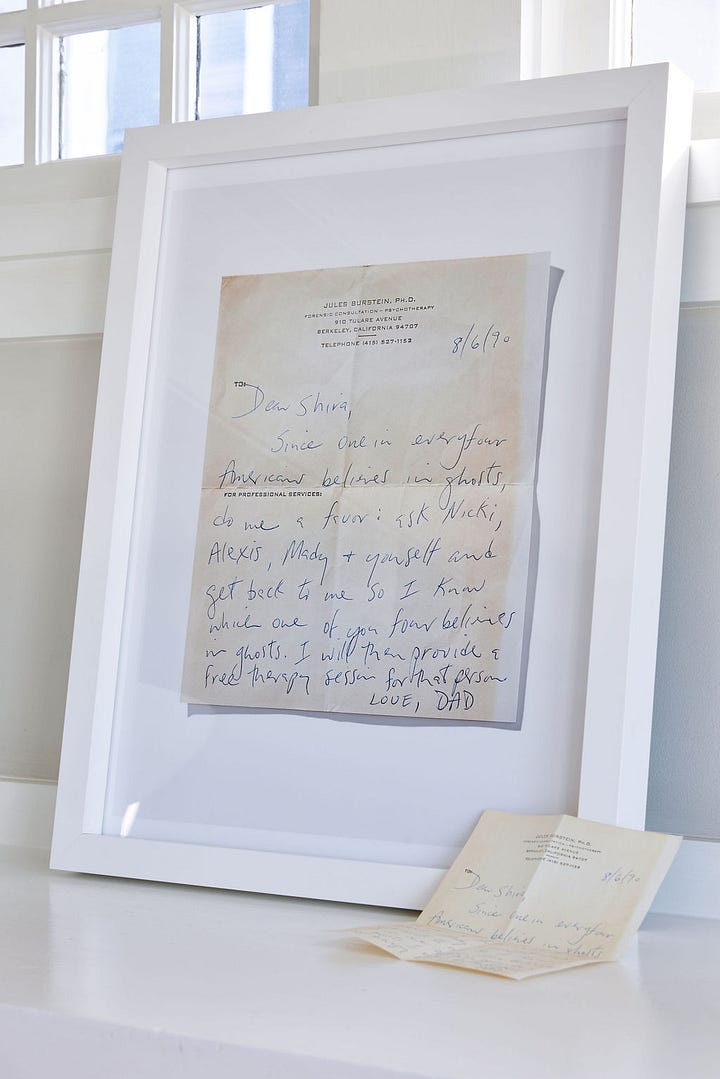 JULES BURSTEIN, PH.D.
FORENSIC CONSULTATION - PSYCHOTHERAPY
910 TULARE AVENUE
BERKELEY, CALIFORNIA 94707
TELEPHONE (415) 527-1153
8/6/90
TO:
Dear Shira,
Since one in every four
Americans believes in ghosts,
FOR PROFESSIONAL SERVICES:
do me a favor: ask Nicki,
Alexis, Mady + yourself and
get back to me so I know
which one of you four believes
in ghosts. I will then provide a
free therapy session for that person
LOVE, DAD
JULES BURSTEIN, PH.D.
FORENSIC CONSULTATION - PSYCHOTHERAPY
910 TULARE AVENUE
BERKELEY, CALIFORNIA 94707
TELEPHONE (415) 527-1153
8/6/90
TO:
Dear Shira,
Since one in every four
Americans believes in ghosts